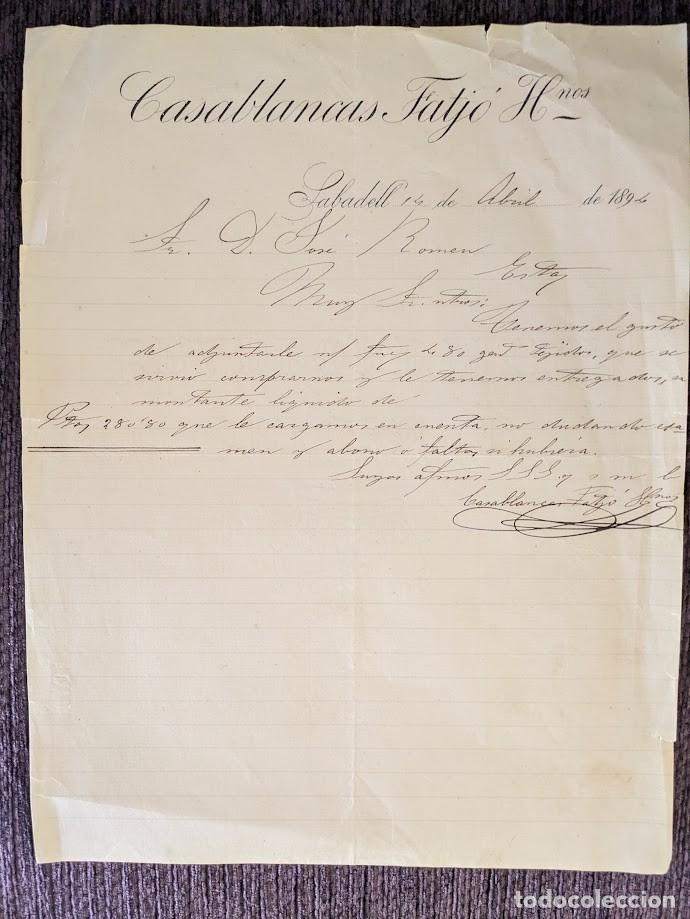 Casablancas Fatjó Hnos
Sabadell 14 de Abril de 189
Sr. D. José Romeu
Esta
Muy Sr. ntro:
Tenemos el gusto
de adjuntarle n/ de tejidos, que se
sirvió comprarnos y le tenemos entregados, su
montante líquido de
Ptas 280'80 que le cargamos en cuenta, no dudando exa-
men y abono ó faltas si hubiera.
Suyos afmos S S S. q s m b
Casablancas Fatjó Hnos
todocoleccion